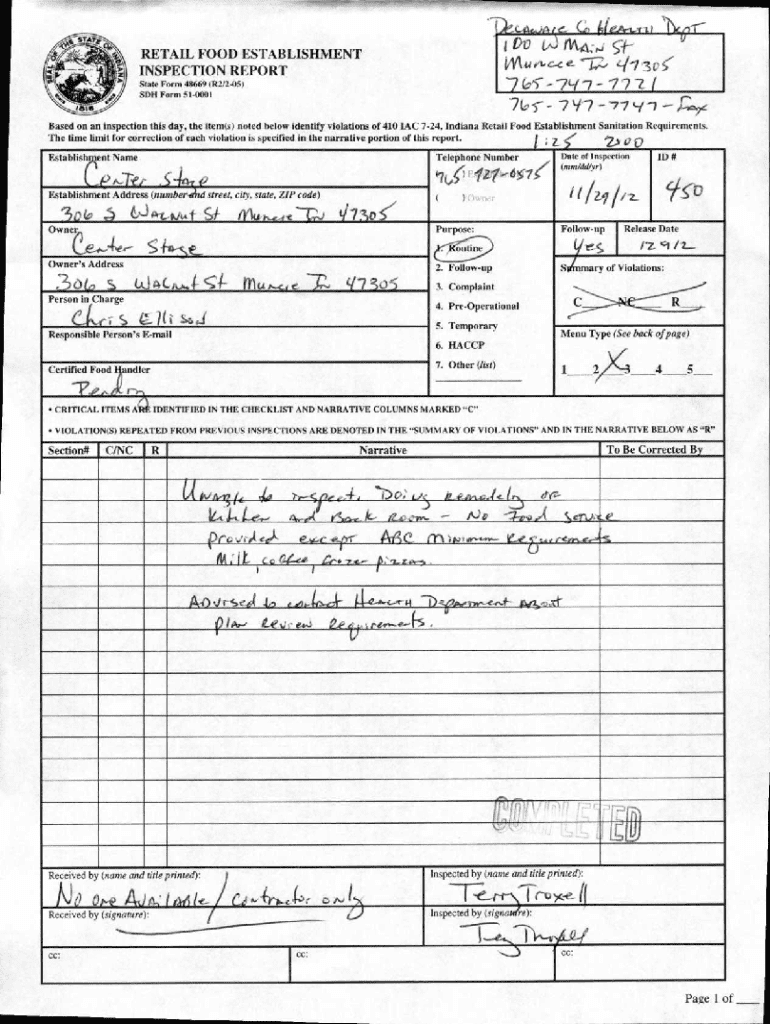 Delaware Co Health Dept
100 W Main St
Muncie In 47305
765-747-7721
765-747-7747-Fax
SEAL OF THE STATE OF INDIANA
1816
RETAIL FOOD ESTABLISHMENT
INSPECTION REPORT
State Form 48669 (R2/2-05)
SDH Form 51-0001
Based on an inspection this day, the item(s) noted below identify violations of 410 IAC 7-24, Indiana Retail Food Establishment Sanitation Requirements.
The time limit for correction of each violation is specified in the narrative portion of this report.
1:25 2:00
Establishment Name
Center Stage
Telephone Number
765
Date of Inspection
(mm/dd/yr)
11/29/12
ID #
450
Establishment Address (number and street, city, state, ZIP code)
306 S Walnut St Muncie In 47305
( ) Owner
Owner
Center Stage
Purpose:
1. Routine
Follow-up
yes
Release Date
12 9 12
Owner's Address
306 S Walnut St Muncie In 47305
2. Follow-up
Summary of Violations:
C NC R
3. Complaint
Person in Charge
Chris Ellison
4. Pre-Operational
5. Temporary
Responsible Person's E-mail
Menu Type (See back of page)
1 2 X 3 4 5
6. HACCP
Certified Food Handler
7. Other (list)
• CRITICAL ITEMS ARE IDENTIFIED IN THE CHECKLIST AND NARRATIVE COLUMNS MARKED "C"
• VIOLATION(S) REPEATED FROM PREVIOUS INSPECTIONS ARE DENOTED IN THE "SUMMARY OF VIOLATIONS" AND IN THE NARRATIVE BELOW AS "R"
Section# C/NC R Narrative To Be Corrected By
Unable to inspect. Doing remodeling of
Kitchen and Back Room - No Food Service
Provided except ABC Minimum Requirements
Milk, coffee, frozen pizzas.
Advised to contact Health Department about
plan review requirements.
COMPLETED
Received by (name and title printed):
No one Available / Contractor only
Inspected by (name and title printed):
Terry Troxell
Received by (signature):
Inspected by (signature):
Terry Troxell
cc: cc: cc:
Page 1 of